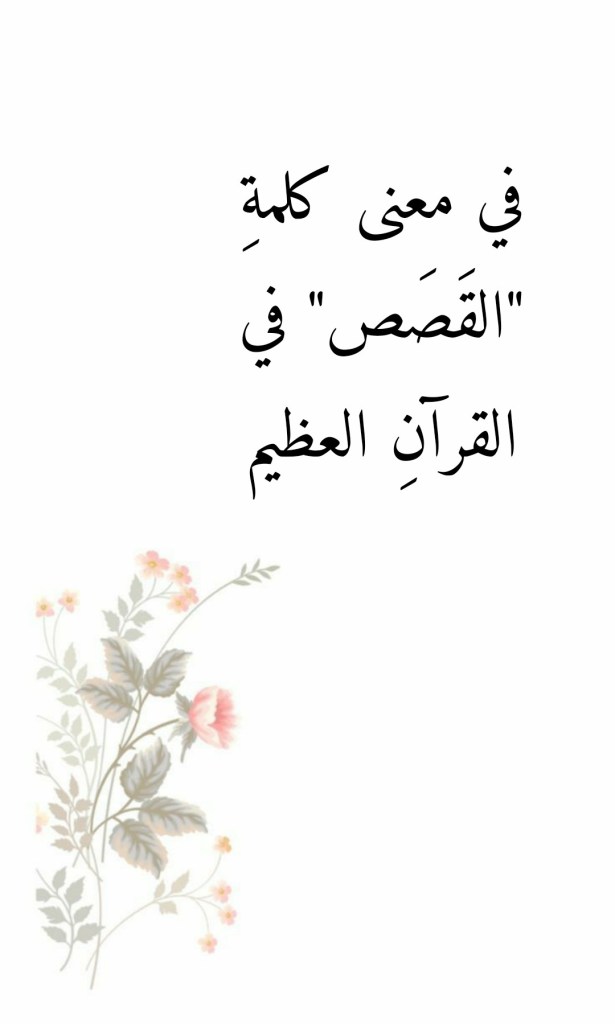 في معنى كلمةِ
"القَصَص" في
القرآنِ العظيم